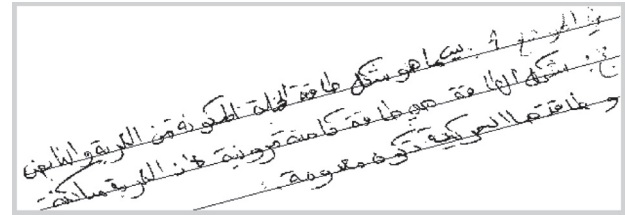 في الموضع 1. بينما هو شكل طاقة الجملة المكونة من الكرية والنابض
ج: شكل الطاقة هو طاقة كامنة مرونية لأن الكرية ساكنة
و طاقتها الحركية تكون معدومة.